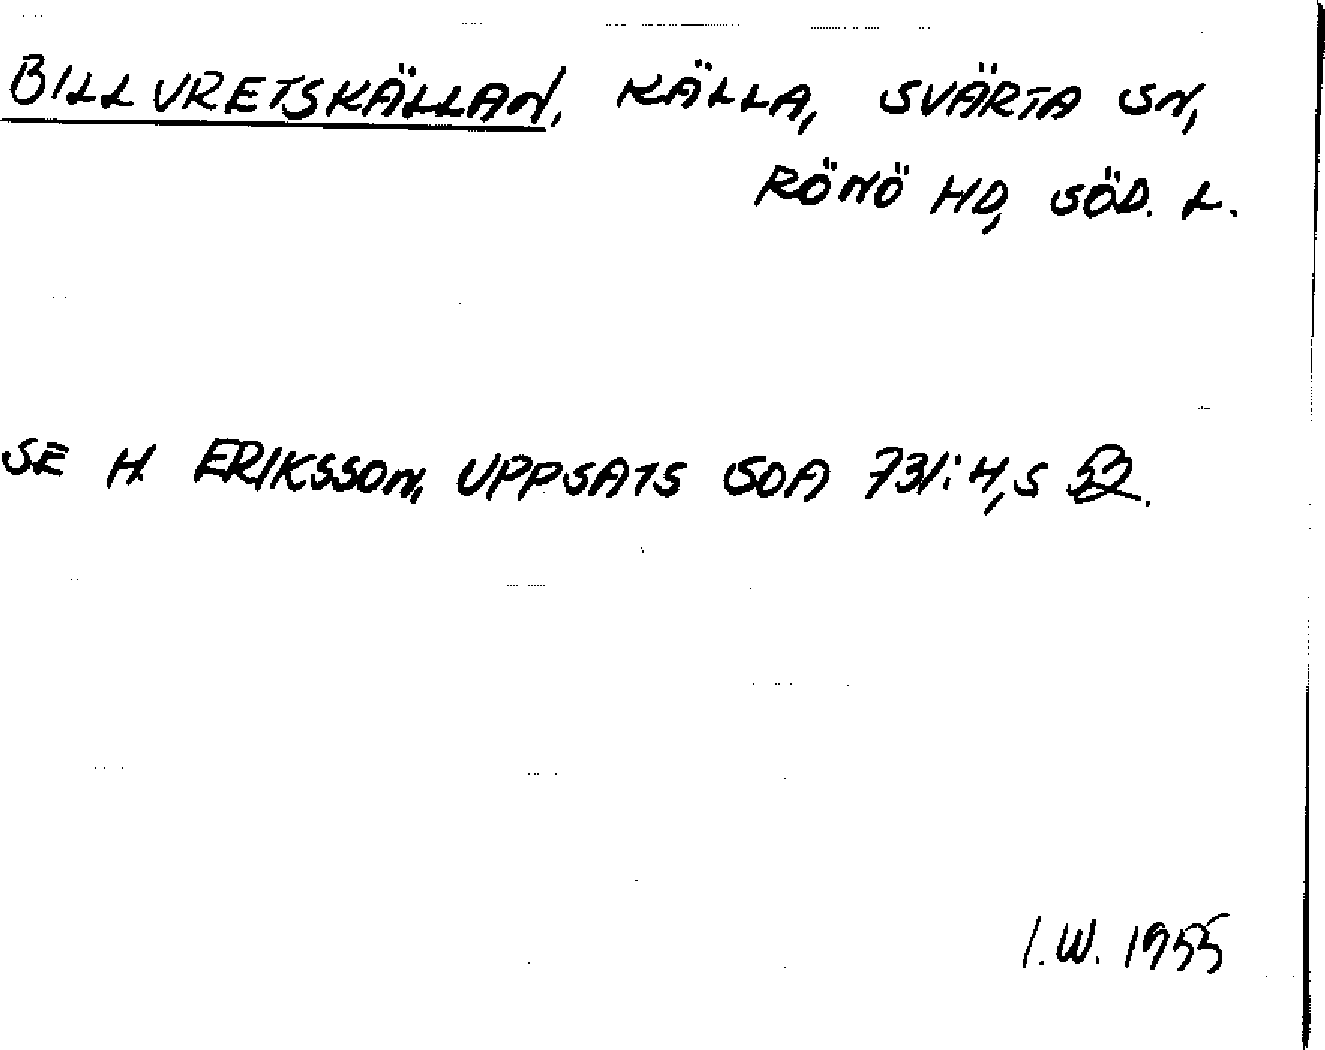 BILLVRETSKÄLLAN, KÄLLA, SVÄRTA SN,
RÖNÖ HD, SÖD. L.
SE H. ERIKSSON, UPPSATS SOA 731:4, S 52.
I.W. 1955